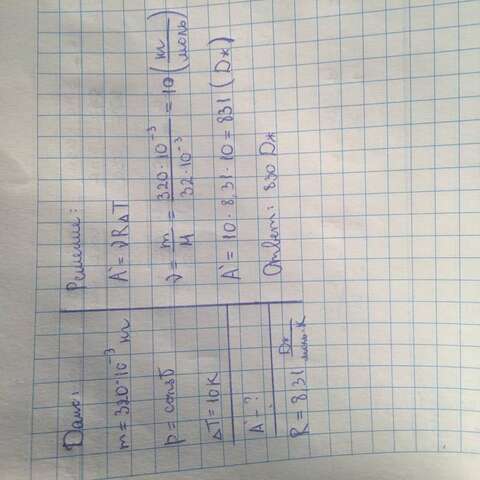 Дано:
m = 320·10⁻³ кг
p = const
ΔT = 10 К
A' - ?
R = 8,31 Дж/моль·К
Решение:
A' = νRΔT
ν = m/M = 320·10⁻³/32·10⁻³ = 10 (кг/моль)
A' = 10 · 8,31 · 10 = 831 (Дж)
Ответ: 830 Дж